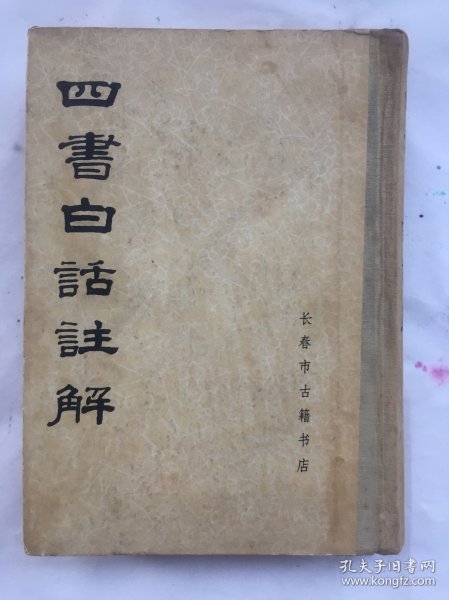 四書白話註解
长春市古籍书店
孔夫子旧书网
www.kongfz.com